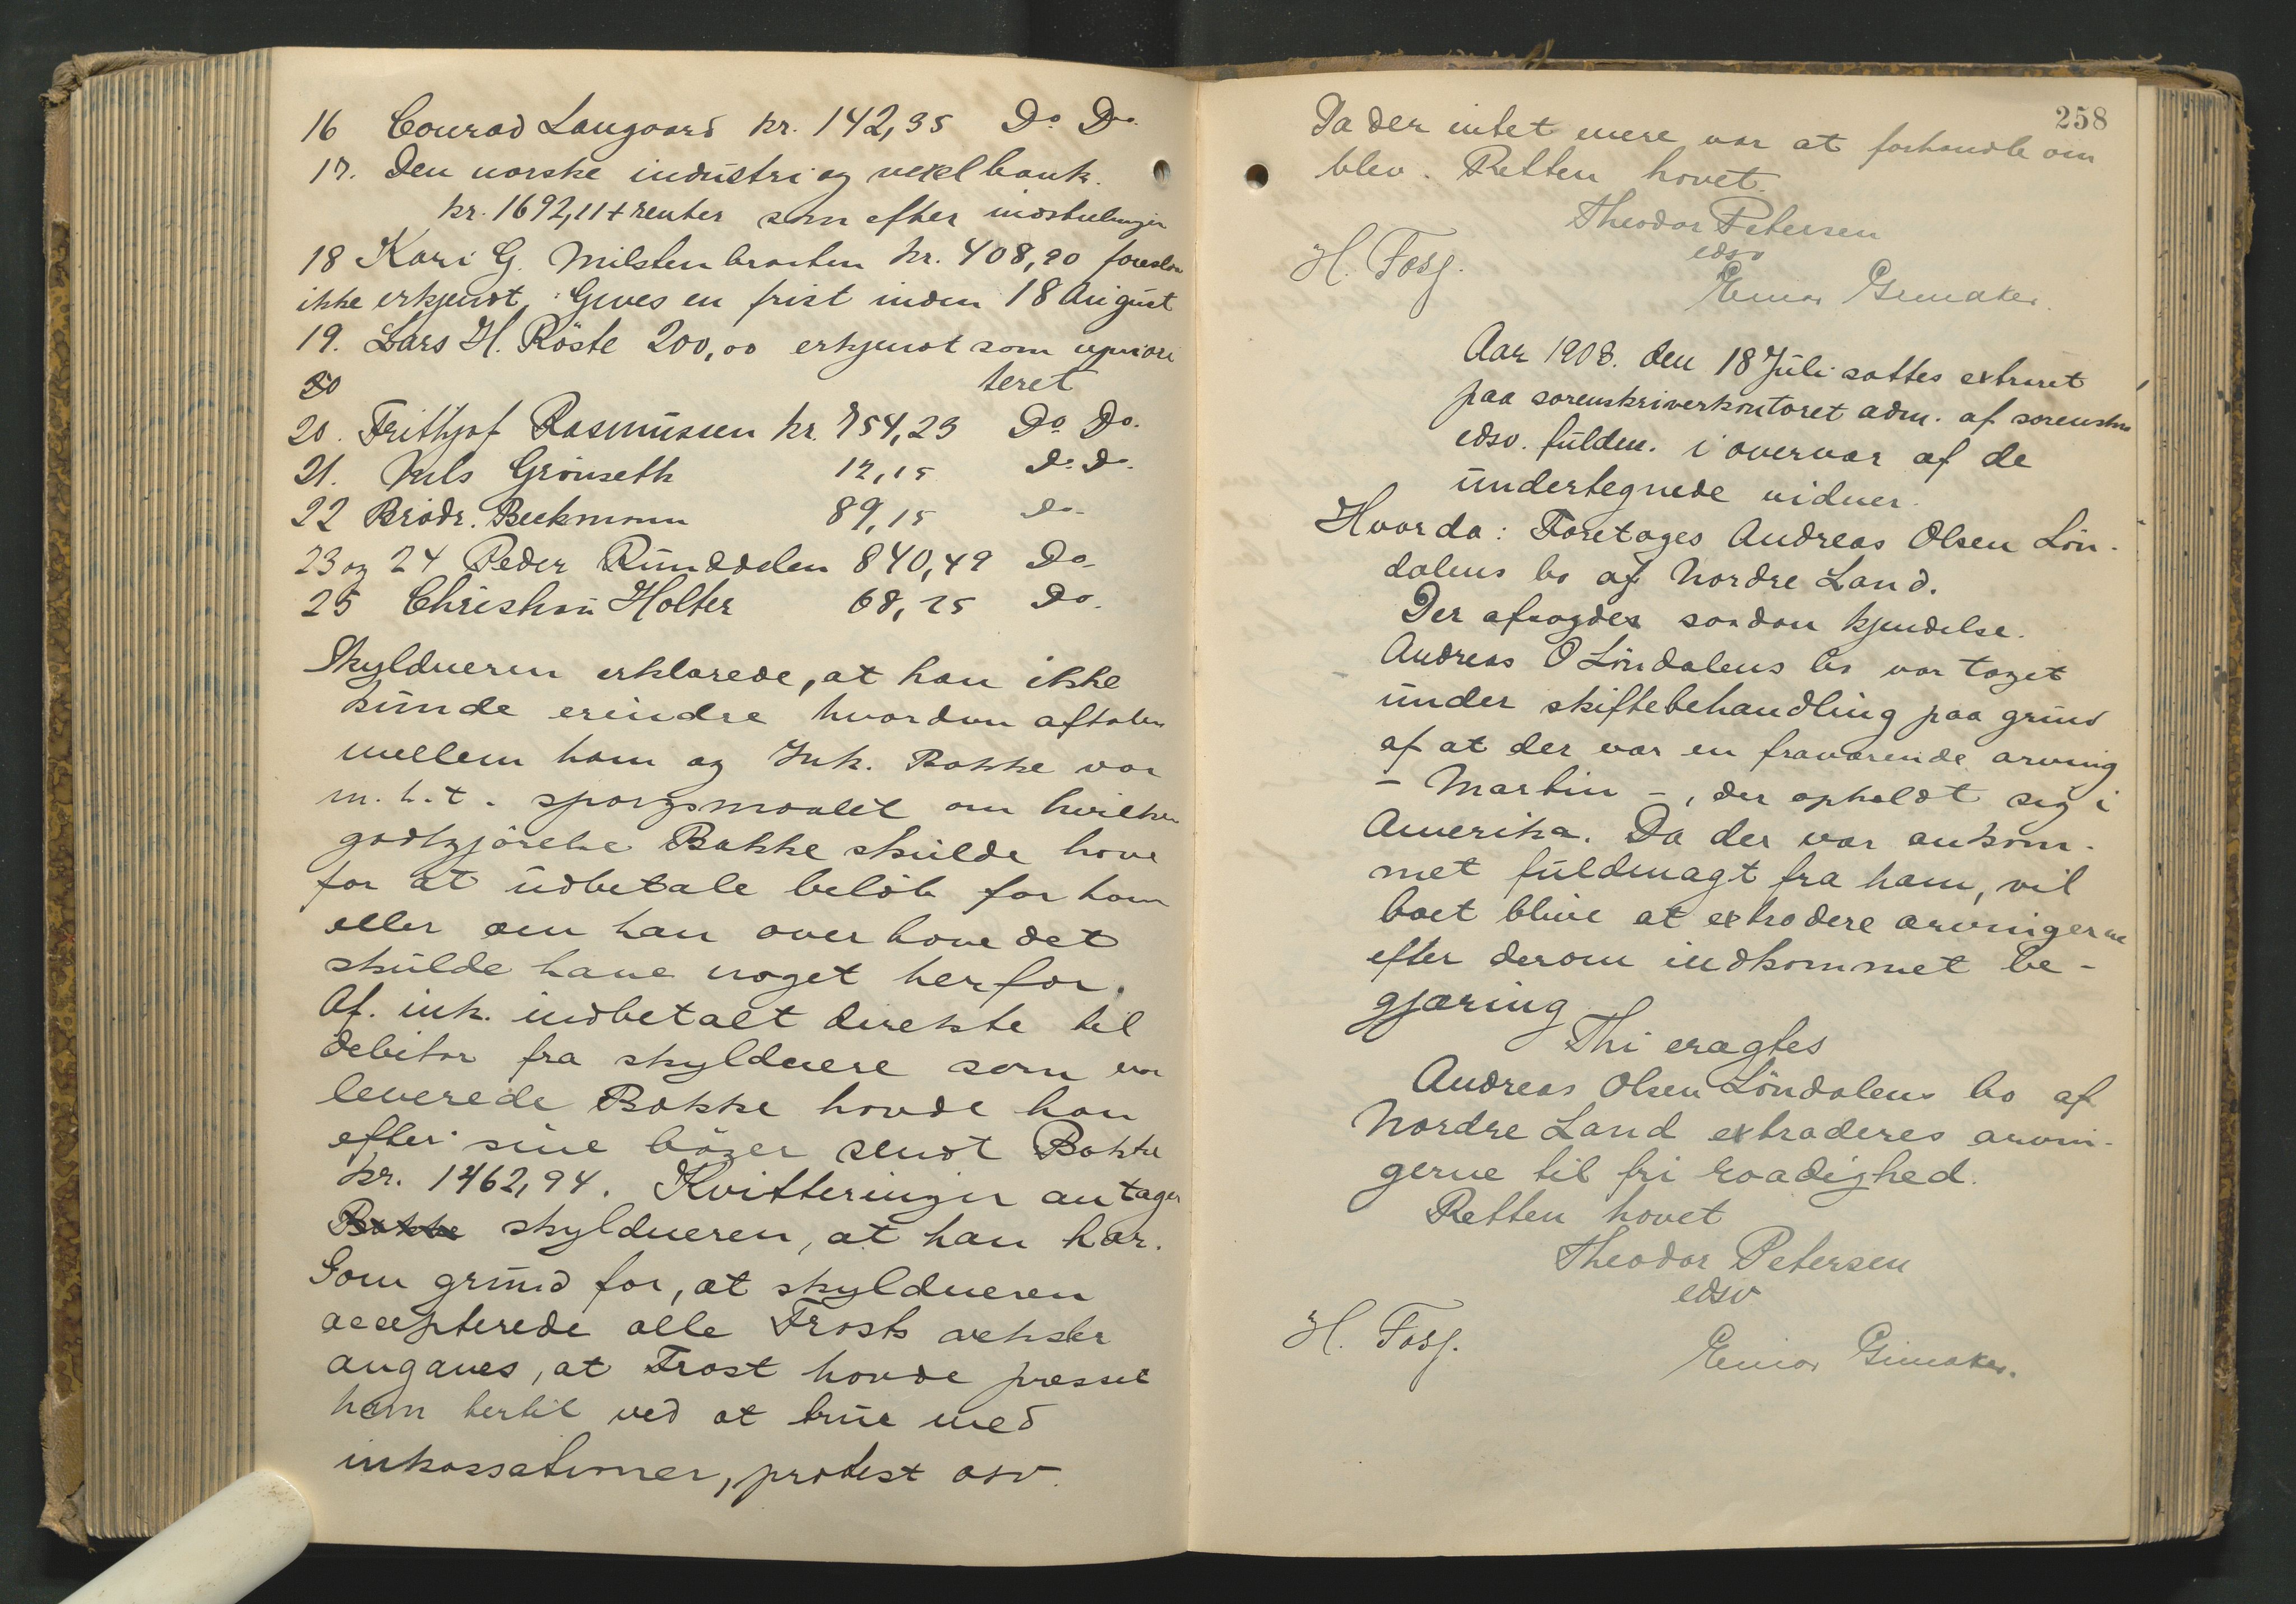 16 Conrad Langaard kr. 142,35 Do Do
17. Den norske industri og vexelbank.
kr. 1692,11 + renter som efter indstillingen
18 Kari G. Milstenbraaten kr. 408,20
ikke erkjendt. Gives en frist inden 18 August
19. Lars H. Röste 200,00 erkjendt som upriori
teret
20. Frithjof Rasmussen kr. 754,23 Do Do.
21. Nils Grönseth 12,15 Do Do.
22 Brödr. Beckmann 89,15 Do
23 og 24 Peder Rudddelen 840,49 Do
25 Christian Holter 68,25 Do.
Skyldneren erklærede, at han ikke
kunde erindre hvordan aftalen
mellem ham og Ink. Bakke var
m.h.t. spørgsmaalet om hvilken
godtgjörelse Bakke skulde have
for at udbetale belöb for ham
eller om han over hovedet
skulde have noget herfor.
Af. ink. indbetalt direkte til
debitor fra skyldnere som var
leverede Bakke havde han
efter sine böger sendt Bakke
kr. 1462,94. Kvitteringer antager
Bakke skyldneren, at han har.
Som grund for, at skyldneren
accepterede alle Frosts veksler
angaves, at Frost havde presset
ham hertil ved at true med
inkassationer, protest osv.
258
Da der intet mere var at forhandle om
blev. Retten hævet.
Theodor Petersen
edsv
H. Fosg.
Einar Grimaker.
Aar 1908. den 18 Juli sattes extraret
paa sorenskriverkontoret adm. af sorenskr
edsv. fuldm. i overvær af de
undertegnede vidner.
Hvorda: Foretages Andreas Olsen Lön-
dalens bo af Nordre Land.
Der afsagdes saadan kjendelse.
Andreas O Löndalens bo var taget
under skiftebehandling paa grund
af at der var en fraværende arving
- Martin -, der opholdt sig i
Amerika. Da der var ankom-
met fuldmagt fra ham, vil
boet blive at extradere arvingerne
efter derom indkommet be-
gjæring
Thi eragtes
Andreas Olsen Löndalens bo af
Nordre Land extraderes arvin-
gerne til fri raadighed.
Retten hævet
Theodor Petersen
edsv
H. Fosg.
Einar Grimaker.